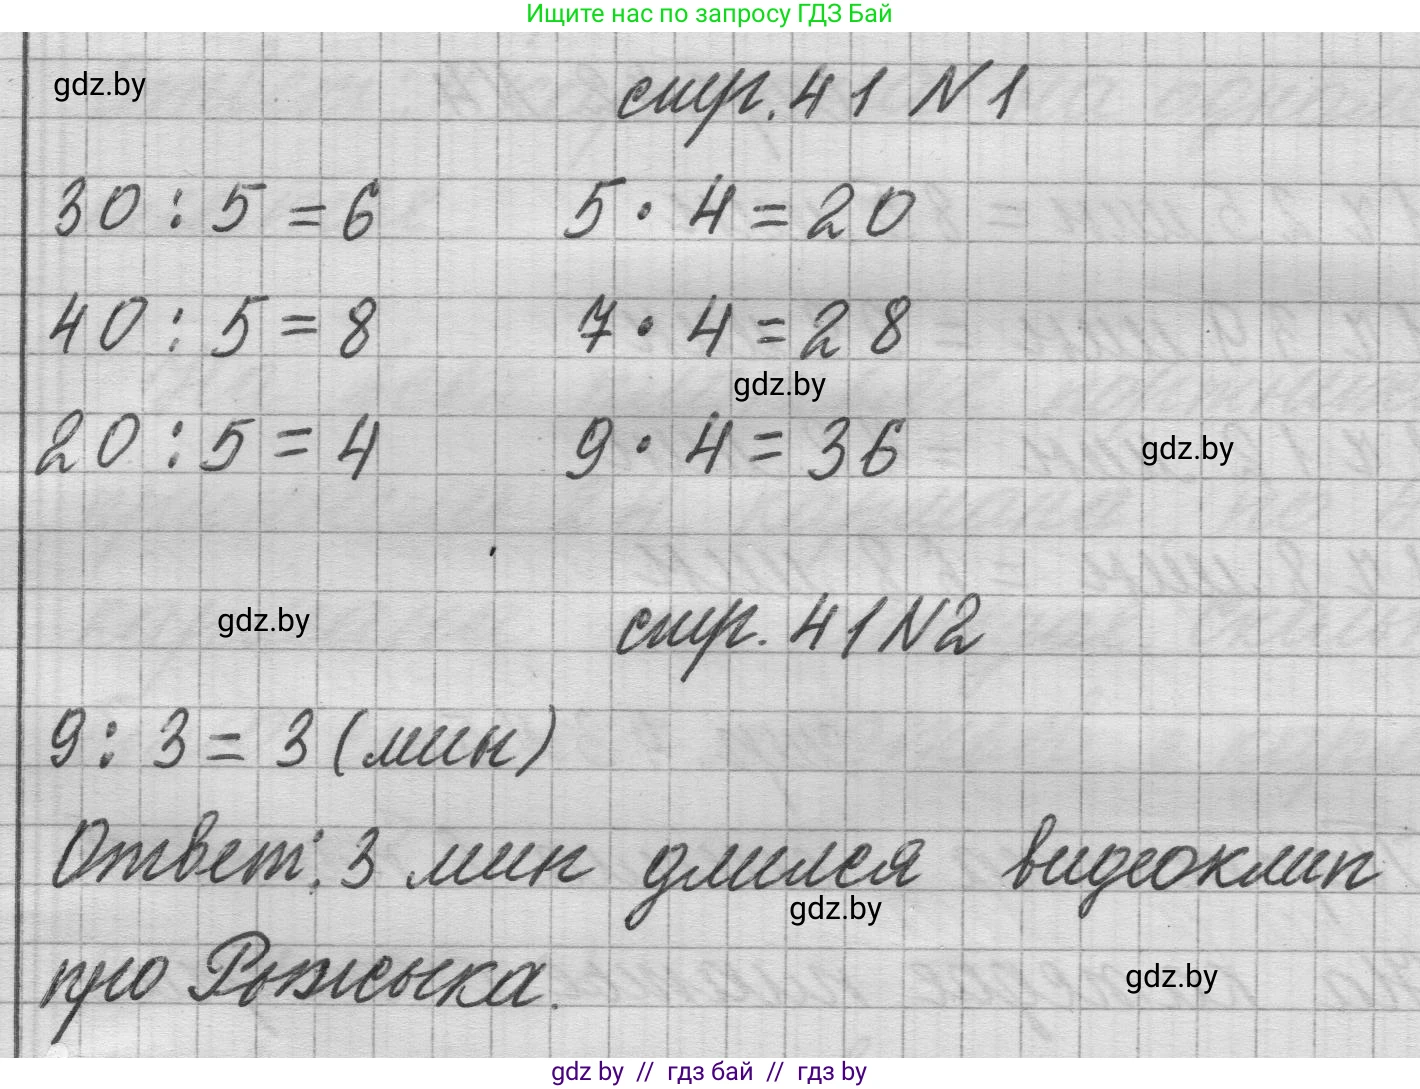 Ищите нас по запросу ГДЗ Бай
gdz.by
стр. 41 N1
30 : 5 = 6 5 · 4 = 20
40 : 5 = 8 7 · 4 = 28
gdz.by
20 : 5 = 4 9 · 4 = 36
gdz.by
gdz.by
стр. 41 N2
9 : 3 = 3 (мин)
Ответ: 3 мин длился видеоклип
gdz.by
про Рыжыка.
gdz.by
gdz by // гдз бай // гдз by